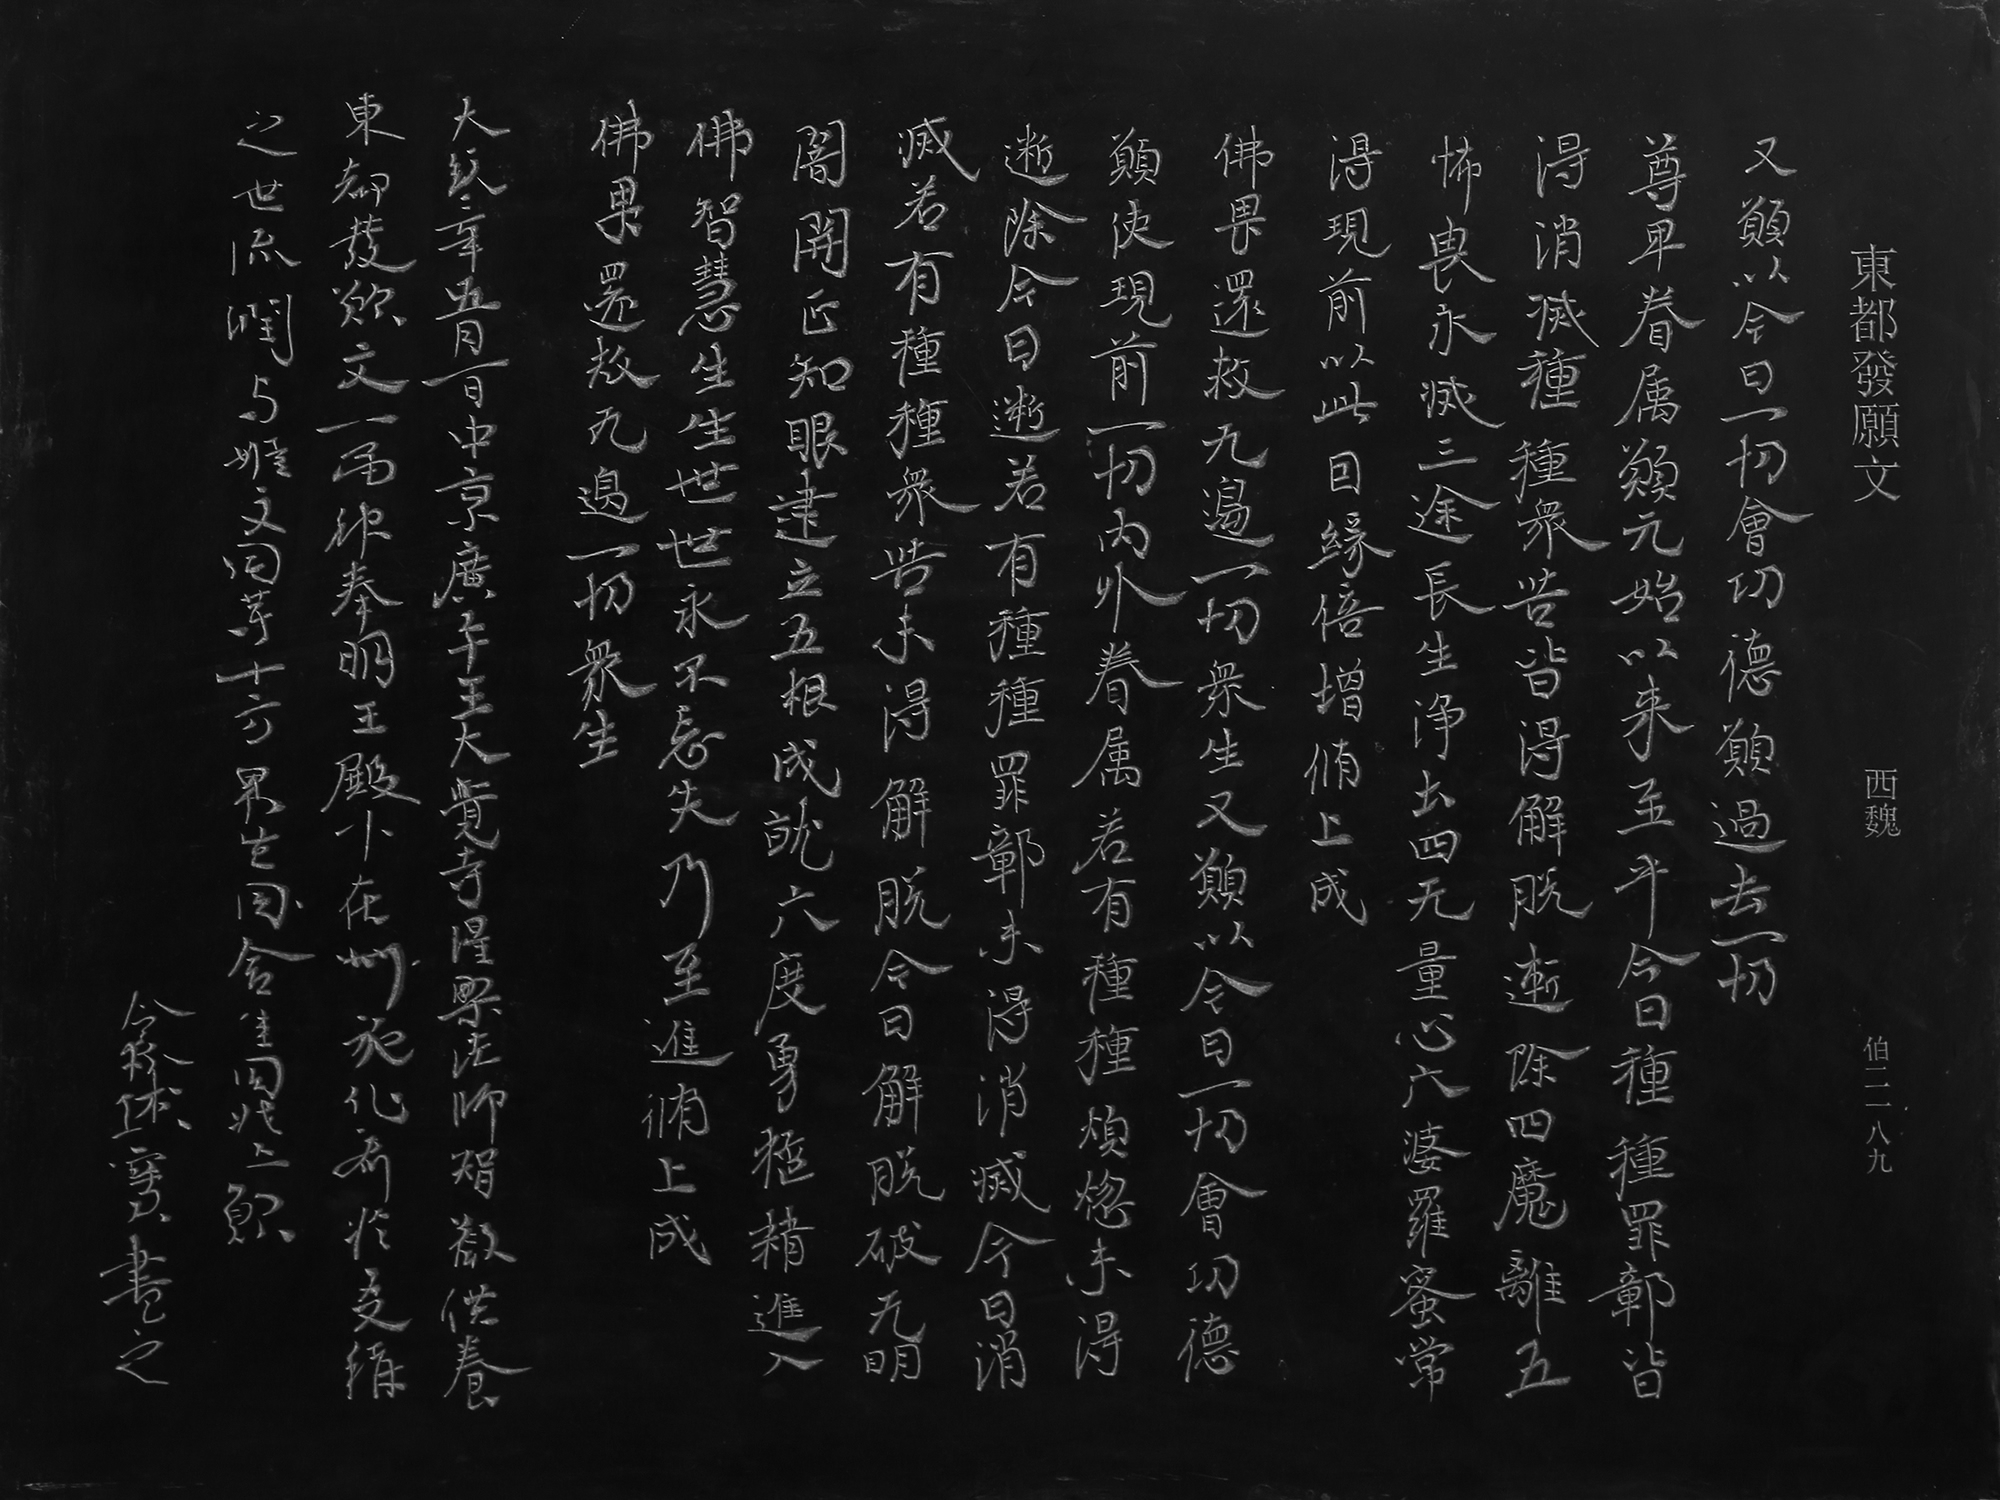 東都發願文 西魏 伯二一八九
又願以今日一切會功德願過去一切
尊卑眷属願元始以来至乎今日種種罪鄣皆
得消滅種種衆苦皆得解脱漸除四魔離五
怖畏永滅三途長生淨土四无量心六婆羅蜜常
得現前以此因緣倍增脩上成
佛果還救九邊一切衆生又願以今日一切會功德
願使現前一切内外眷属若有種種煩惚未得
漸除今日漸若有種種罪鄣未得消滅今日消
滅若有種種衆苦未得解脱今日解脱破无明
闇開正知眼建立五根成就六度勇猛精進入
佛智慧生生世世永不忘失乃至進脩上成
佛果還救九邊一切衆生
大統三年五月一日中京廣平王大覺寺涅槃法師智嚴供養
東都發願文一弄仰奉明王殿下在州施化齊於友稱
之世流潤与姬文同等十方眾生同含生同此上願
令狐休寶書之